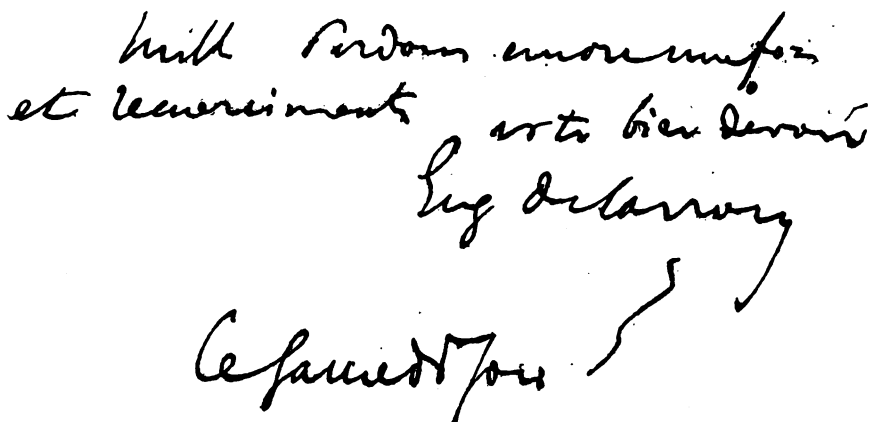 mille Pardons encore une fois
et remerciments votre bien dévoué
Eug Delacroix
Ce samedi soir